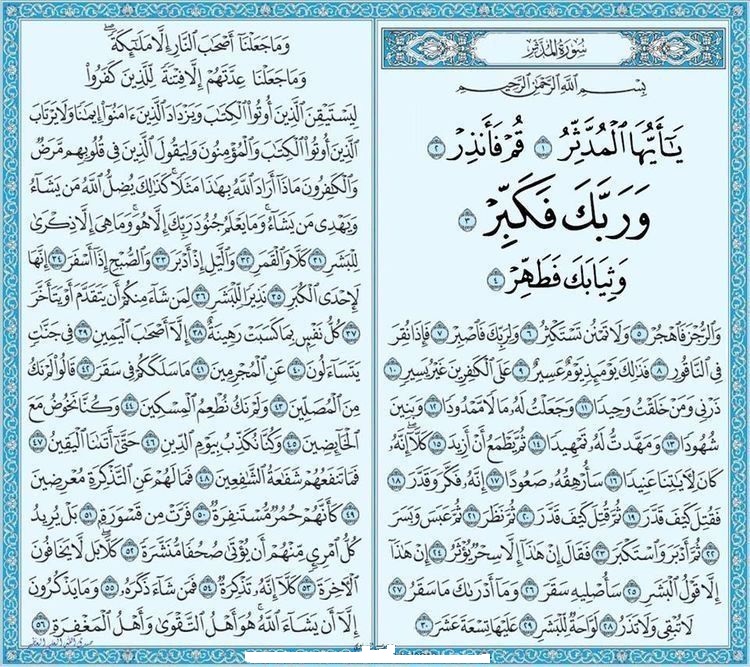 سُورَةُ المُدَّثِّر
بِسْمِ ٱللَّهِ ٱلرَّحْمَٰنِ ٱلرَّحِيمِ
يَٰٓأَيُّهَا ٱلْمُدَّثِّرُ ١ قُمْ فَأَنذِرْ ٢
وَرَبَّكَ فَكَبِّرْ ٣
وَثِيَابَكَ فَطَهِّرْ ٤
وَٱلرُّجْزَ فَٱهْجُرْ ٥ وَلَا تَمْنُن تَسْتَكْثِرُ ٦ وَلِرَبِّكَ فَٱصْبِرْ ٧ فَإِذَا نُقِرَ
فِى ٱلنَّاقُورِ ٨ فَذَٰلِكَ يَوْمَئِذٍ يَوْمٌ عَسِيرٌ ٩ عَلَى ٱلْكَٰفِرِينَ غَيْرُ يَسِيرٍ ١٠
ذَرْنِى وَمَنْ خَلَقْتُ وَحِيدًا ١١ وَجَعَلْتُ لَهُۥ مَالًا مَّمْدُودًا ١٢ وَبَنِينَ
شُهُودًا ١٣ وَمَهَّدتُّ لَهُۥ تَمْهِيدًا ١٤ ثُمَّ يَطْمَعُ أَنْ أَزِيدَ ١٥ كَلَّآ إِنَّهُۥ
كَانَ لِءَايَٰتِنَا عَنِيدًا ١٦ سَأُرْهِقُهُۥ صَعُودًا ١٧ إِنَّهُۥ فَكَّرَ وَقَدَّرَ ١٨
فَقُتِلَ كَيْفَ قَدَّرَ ١٩ ثُمَّ قُتِلَ كَيْفَ قَدَّرَ ٢٠ ثُمَّ نَظَرَ ٢١ ثُمَّ عَبَسَ وَبَسَرَ
٢٢ ثُمَّ أَدْبَرَ وَٱسْتَكْبَرَ ٢٣ فَقَالَ إِنْ هَٰذَآ إِلَّا سِحْرٌ يُؤْثَرُ ٢٤ إِنْ هَٰذَآ
إِلَّا قَوْلُ ٱلْبَشَرِ ٢٥ سَأُصْلِيهِ سَقَرَ ٢٦ وَمَآ أَدْرَىٰكَ مَا سَقَرُ ٢٧
لَا تُبْقِى وَلَا تَذَرُ ٢٨ لَوَّاحَةٌ لِّلْبَشَرِ ٢٩ عَلَيْهَا تِسْعَةَ عَشَرَ ٣٠
وَمَا جَعَلْنَآ أَصْحَٰبَ ٱلنَّارِ إِلَّا مَلَٰٓئِكَةً ۙ
وَمَا جَعَلْنَا عِدَّتَهُمْ إِلَّا فِتْنَةً لِّلَّذِينَ كَفَرُوا۟
لِيَسْتَيْقِنَ ٱلَّذِينَ أُوتُوا۟ ٱلْكِتَٰبَ وَيَزْدَادَ ٱلَّذِينَ ءَامَنُوٓا۟ إِيمَٰنًا وَلَا يَرْتَابَ
ٱلَّذِينَ أُوتُوا۟ ٱلْكِتَٰبَ وَٱلْمُؤْمِنُونَ وَلِيَقُولَ ٱلَّذِينَ فِى قُلُوبِهِم مَّرَضٌ
وَٱلْكَٰفِرُونَ مَاذَآ أَرَادَ ٱللَّهُ بِهَٰذَا مَثَلًا ۚ كَذَٰلِكَ يُضِلُّ ٱللَّهُ مَن يَشَآءُ
وَيَهْدِى مَن يَشَآءُ ۚ وَمَا يَعْلَمُ جُنُودَ رَبِّكَ إِلَّا هُوَ ۚ وَمَا هِىَ إِلَّا ذِكْرَىٰ
لِلْبَشَرِ ٣١ كَلَّا وَٱلْقَمَرِ ٣٢ وَٱلَّيْلِ إِذْ أَدْبَرَ ٣٣ وَٱلصُّبْحِ إِذَآ أَسْفَرَ ٣٤ إِنَّهَا
لَإِحْدَى ٱلْكُبَرِ ٣٥ نَذِيرًا لِّلْبَشَرِ ٣٦ لِمَن شَآءَ مِنكُمْ أَن يَتَقَدَّمَ أَوْ يَتَأَخَّرَ
٣٧ كُلُّ نَفْسٍۭ بِمَا كَسَبَتْ رَهِينَةٌ ٣٨ إِلَّآ أَصْحَٰبَ ٱلْيَمِينِ ٣٩ فِى جَنَّٰتٍ
يَتَسَآءَلُونَ ٤٠ عَنِ ٱلْمُجْرِمِينَ ٤١ مَا سَلَكَكُمْ فِى سَقَرَ ٤٢ قَالُوا۟ لَمْ نَكُ
مِنَ ٱلْمُصَلِّينَ ٤٣ وَلَمْ نَكُ نُطْعِمُ ٱلْمِسْكِينَ ٤٤ وَكُنَّا نَخُوضُ مَعَ
ٱلْخَآئِضِينَ ٤٥ وَكُنَّا نُكَذِّبُ بِيَوْمِ ٱلدِّينِ ٤٦ حَتَّىٰٓ أَتَىٰنَا ٱلْيَقِينُ ٤٧
فَمَا تَنفَعُهُمْ شَفَٰعَةُ ٱلشَّٰفِعِينَ ٤٨ فَمَا لَهُمْ عَنِ ٱلتَّذْكِرَةِ مُعْرِضِينَ
٤٩ كَأَنَّهُمْ حُمُرٌ مُّسْتَنفِرَةٌ ٥٠ فَرَّتْ مِن قَسْوَرَةٍۭ ٥١ بَلْ يُرِيدُ
كُلُّ ٱمْرِئٍ مِّنْهُمْ أَن يُؤْتَىٰ صُحُفًا مُّنَشَّرَةً ٥٢ كَلَّا ۖ بَل لَّا يَخَافُونَ
ٱلْءَاخِرَةَ ٥٣ كَلَّآ إِنَّهُۥ تَذْكِرَةٌ ٥٤ فَمَن شَآءَ ذَكَرَهُۥ ٥٥ وَمَا يَذْكُرُونَ
إِلَّآ أَن يَشَآءَ ٱللَّهُ ۚ هُوَ أَهْلُ ٱلتَّقْوَىٰ وَأَهْلُ ٱلْمَغْفِرَةِ ٥٦